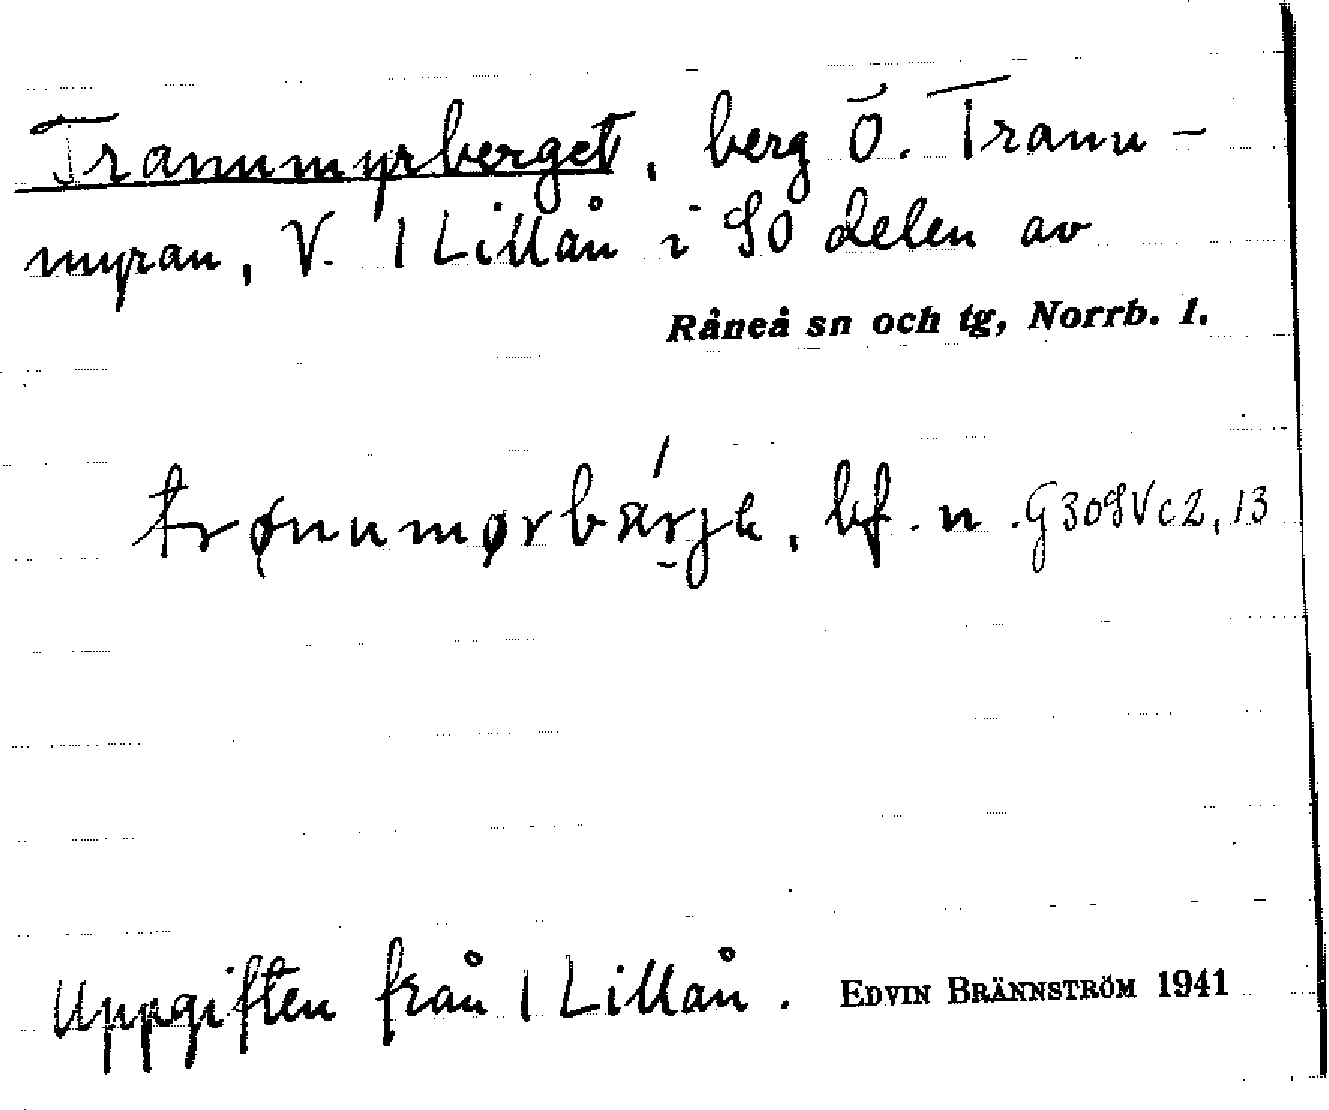 Tranumyrberget, berg Ö. Tranu-
myran, V. 1 Lillån i SO delen av
Råneå sn och tg, Norrb. l.
trønumørbärje, bf. n. G30SVc2,13
Uppgiften från 1 Lillån. EDVIN BRÄNNSTRÖM 1941